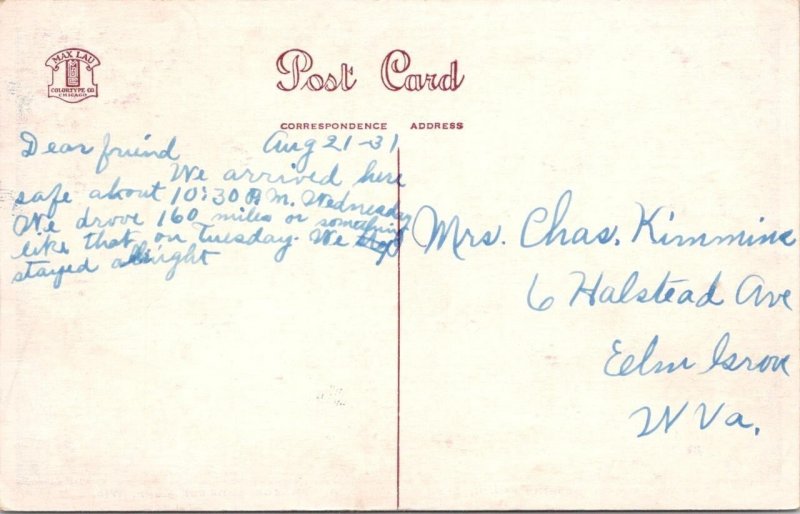 MAX LAU
COLORTYPE CO
CHICAGO
Post Card
CORRESPONDENCE ADDRESS
Aug 21-31
Dear friend
We arrived here
safe about 10:30 P.M. Wednesday
We drove 160 miles or something
like that on Tuesday. We
stayed all night
Mrs. Chas. Kimmine
6 Halstead Ave
Eelm Grove
W Va.